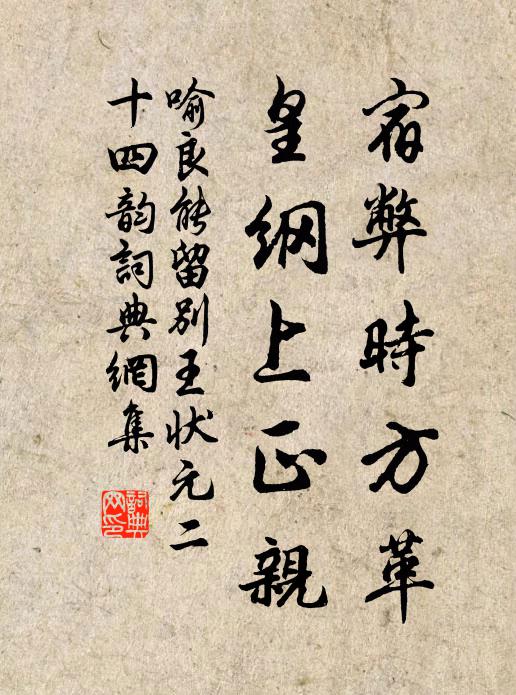 宿弊時方革
皇綱上正親
喻良能留别王状元二
十四韵詞典網集
詞典
网印